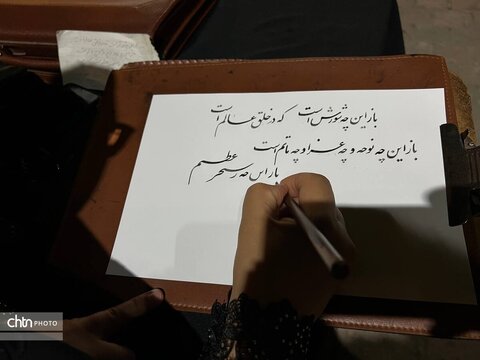 باز این چه شورش است که در خلق عالم است
باز این چه نوحه و چه عزا و چه ماتم است
باز این چه رستخیز عظیم
chtn PHOTO